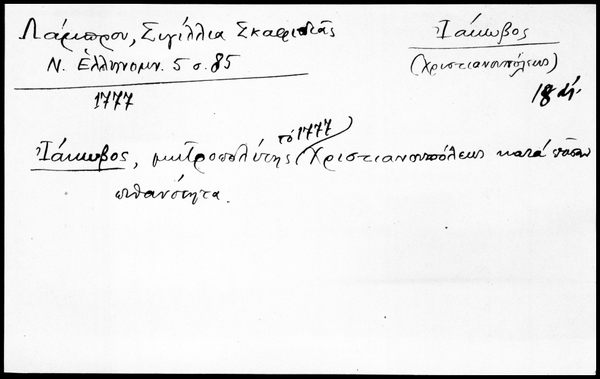 Λάμπρου, Σιγίλλια Σκαφιδιᾶς
Ν. Ἑλληνομν. 5 σ. 85
1777
Ἰάκωβος
(Χριστιανουπόλεως)
18 αἰ.
Ἰάκωβος, μητροπολίτης (τὸ 1777) Χριστιανουπόλεως κατὰ πᾶσαν
πιθανότητα.